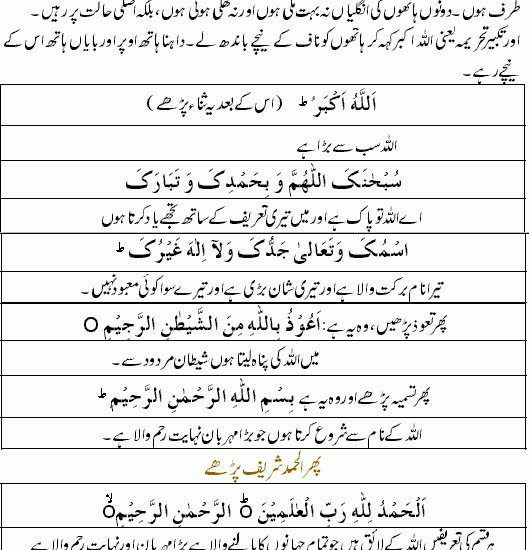 طرف ہوں۔ دونوں ہاتھوں کی انگلیاں نہ بہت ملی ہوں اور نہ کھلی ہوئی ہوں، بلکہ اصلی حالت پر رہیں۔
اور تکبیر تحریمہ یعنی اللہ اکبر کہہ کر ہاتھوں کو ناف کے نیچے باندھ لے۔ داہنا ہاتھ اوپر اور بایاں ہاتھ اس کے
نیچے رہے۔
اَللّٰهُ اَکْبَرُ ؕ (اس کے بعد یہ ثناء پڑھے)
اللہ سب سے بڑا ہے
سُبْحٰنَکَ اللّٰهُمَّ وَ بِحَمْدِکَ وَ تَبَارَکَ
اے اللہ تو پاک ہے اور میں تیری تعریف کے ساتھ تجھے یاد کرتا ہوں
اسْمُکَ وَتَعَالیٰ جَدُّکَ وَلَآ اِلٰهَ غَیْرُکَ ؕ
تیرا نام برکت والا ہے اور تیری شان بڑی ہے اور تیرے سوا کوئی معبود نہیں۔
پھر تعوذ پڑھیں، وہ یہ ہے: اَعُوْذُ بِاللّٰهِ مِنَ الشَّیْطٰنِ الرَّجِیْمِ ○
میں اللہ کی پناہ لیتا ہوں شیطان مردود سے۔
پھر تسمیہ پڑھے اور وہ یہ ہے بِسْمِ اللّٰهِ الرَّحْمٰنِ الرَّحِیْمِ ؕ
اللہ کے نام سے شروع کرتا ہوں جو بڑا مہربان نہایت رحم والا ہے۔
پھر الحمد شریف پڑھے
اَلْحَمْدُ لِلّٰهِ رَبِّ الْعٰلَمِیْنَ ○ؕ الرَّحْمٰنِ الرَّحِیْمِ ○ۙ
ہر قسم کی تعریفیں اللہ کے لائق ہیں جو تمام جہانوں کا پالنے والا ہے بڑا مہربان اور نہایت رحم والا ہے